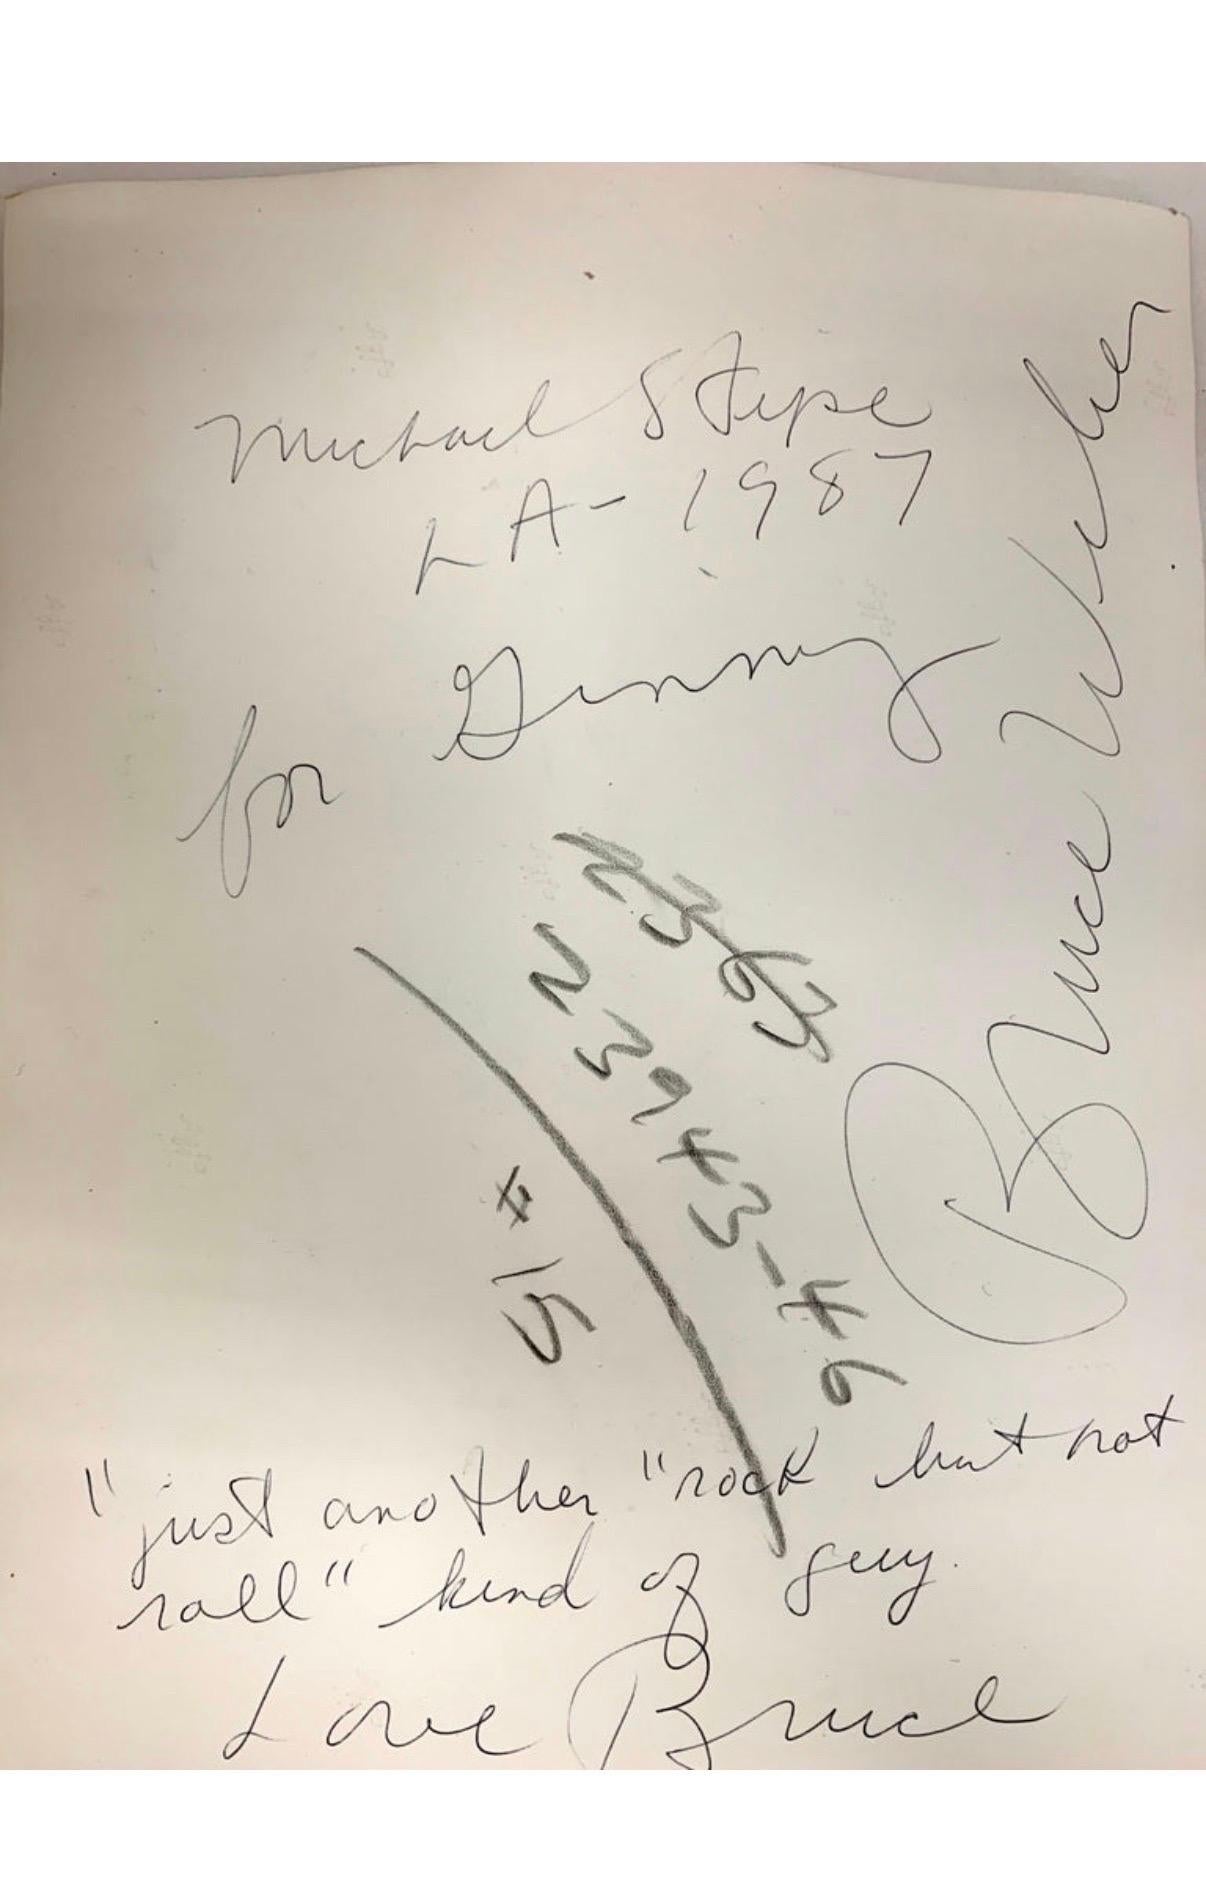 Michael Stipe
LA - 1987
for Ginny
Bruce Weber
N3943-#6
#15
"just another "rock but not
roll" kind of guy.
Love Bruce